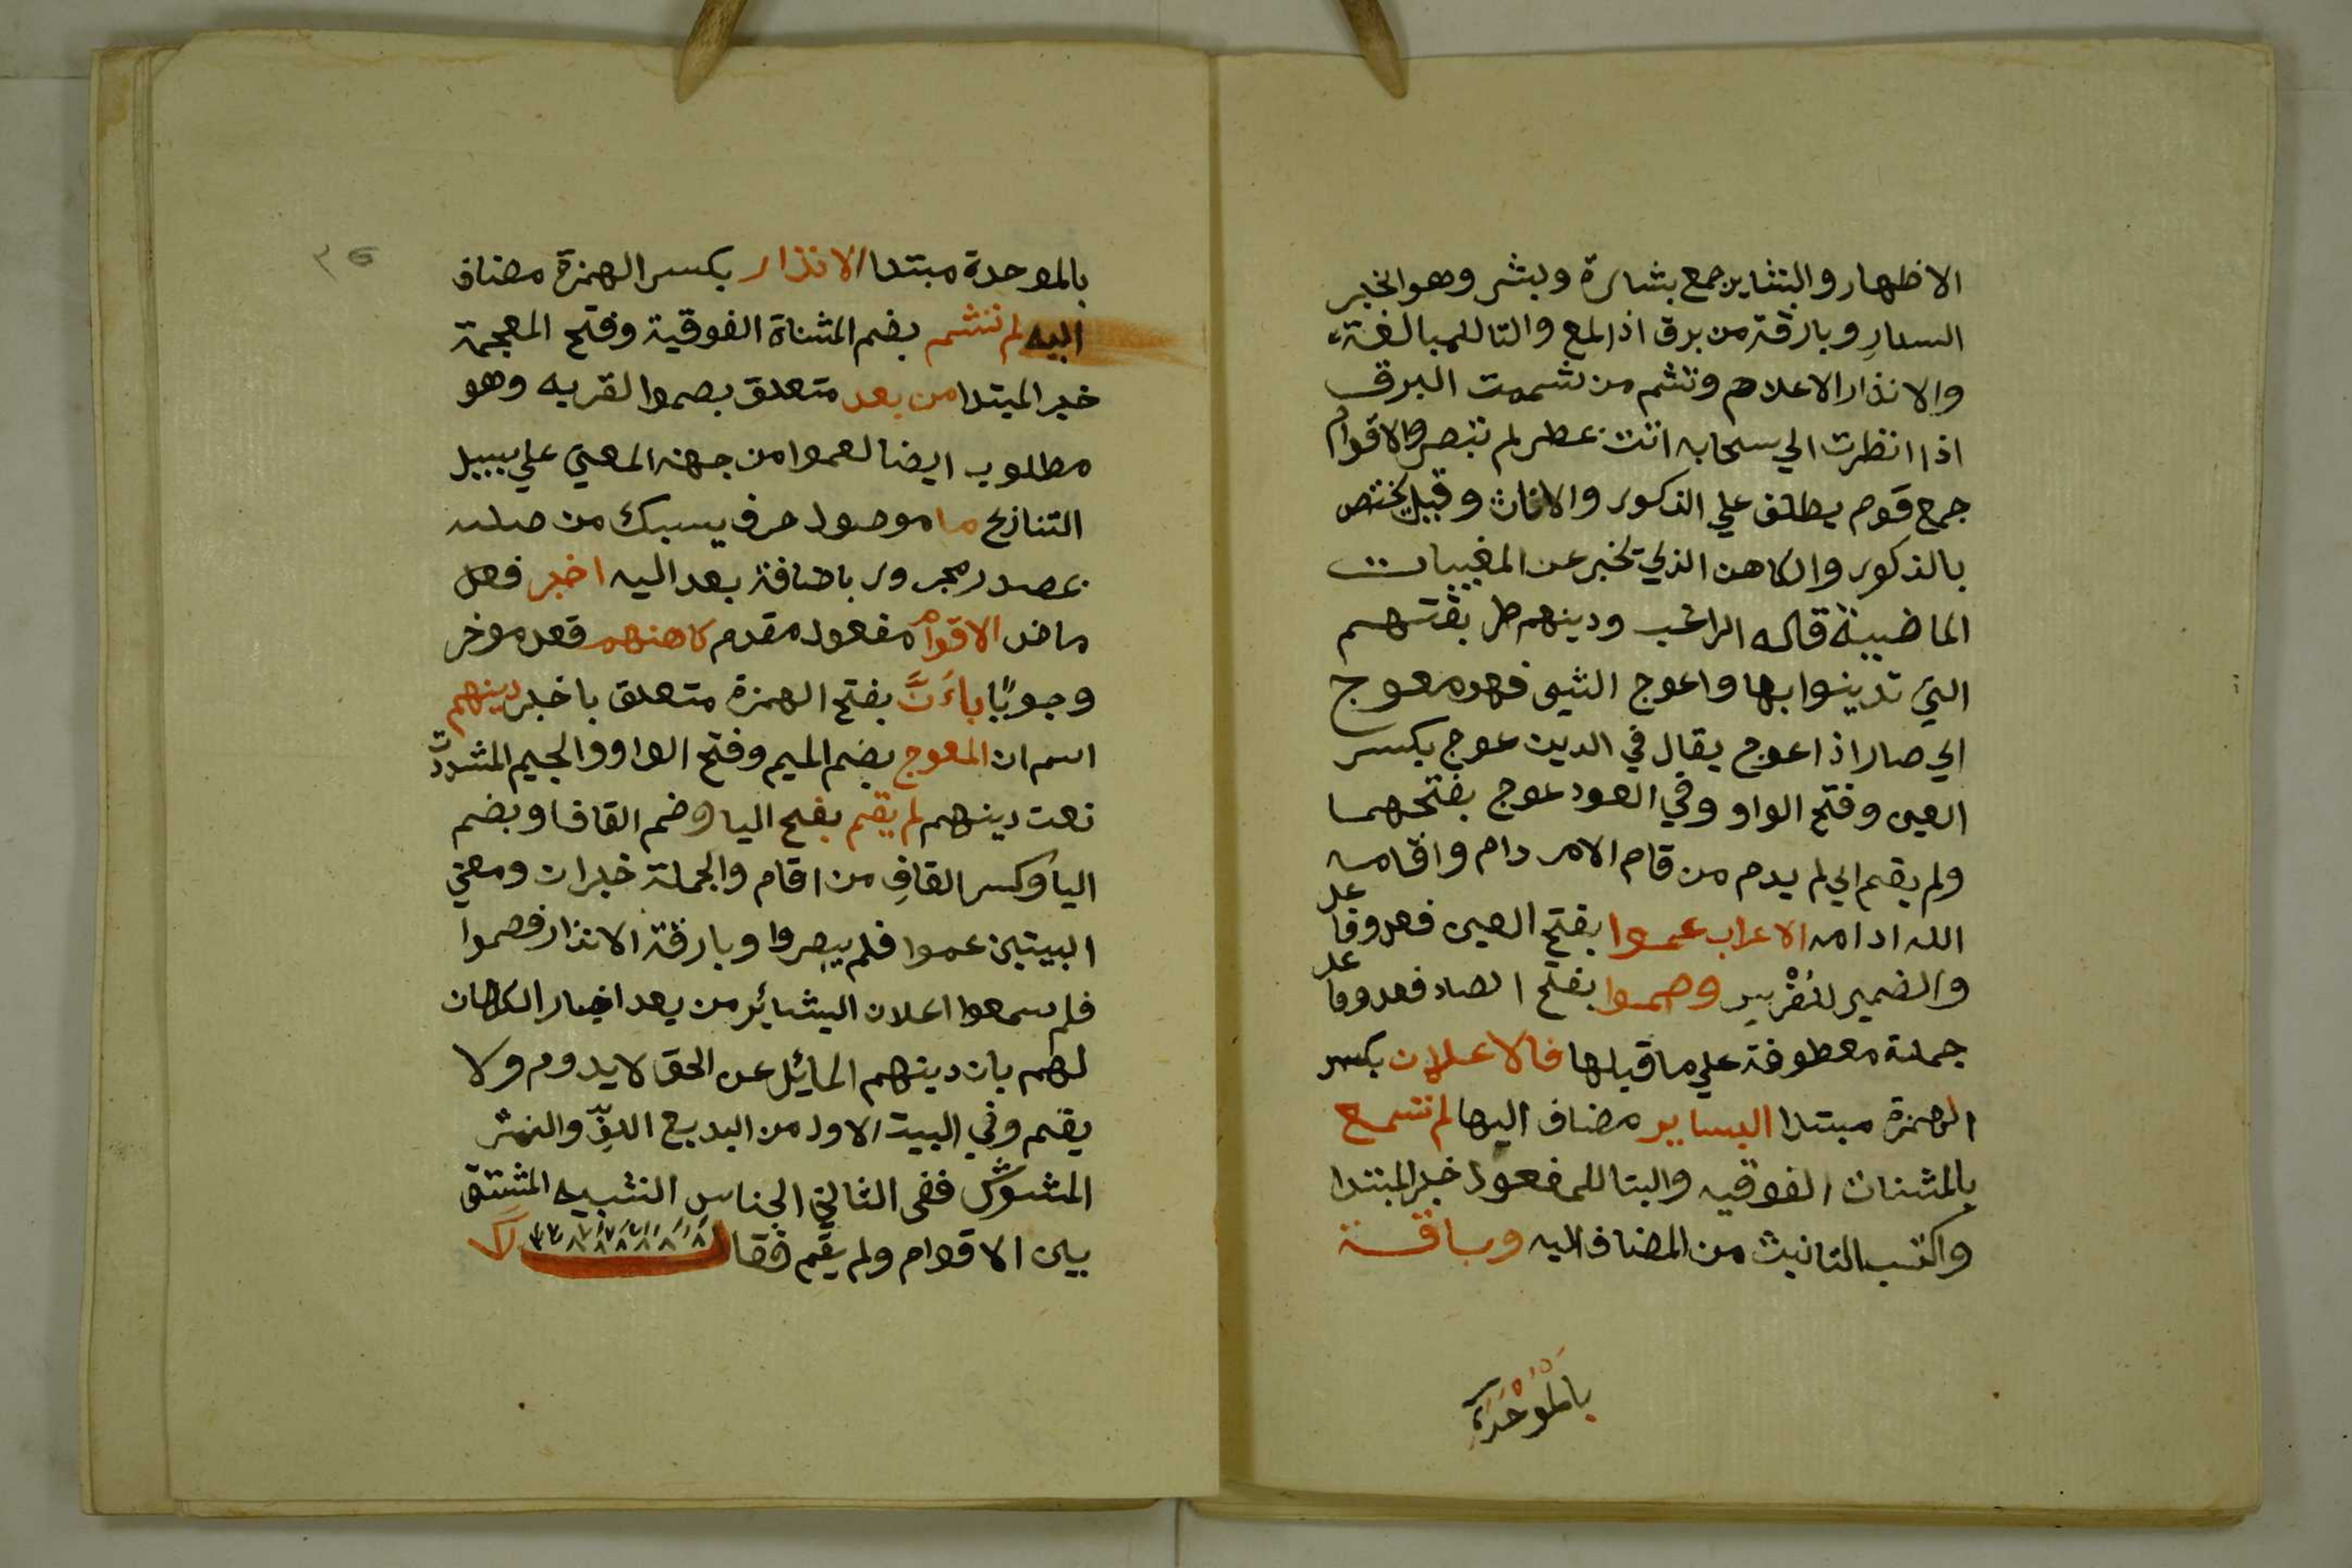 الاظهار والبشاير جمع بشارة وبشر وهو الخبر
السار وبارقة من برق اذا لمع والتا للمبالغة
والانذار الاعلام وتشم من شممت البرق
اذا انظرت الي سحابه انت عطر لم تبصر والاقوام
جمع قوم يطلق علي الذكور والاناث وقيل يختص
بالذكور والكاهن الذي يخبر عن المغيبات
الماضية قاله الراغب ودينهم طريقتهم
التي تدينوا بها واعوج الشي فهو معوج
اي صار اذا عوج يقال في الدين عوج بكسر
العين وفتح الواو وفي العود عوج بفتحهما
ولم يقم اي لم يدم من قام الامر دام واقامه
الله ادامه الاعراب عموا بفتح العين فعل وفاعل
والضمير لقريش وصموا بفتح الصاد فعل وفاعل
جملة معطوفة علي ما قبلها فالاعلان بكسر
الهمزة مبتدا البساير مضاف اليها لم تسمع
بالمثنات الفوقيه والبنا للمفعول خبر المبتدا
واكتسب التانيث من المضاف اليه وبارقة
بالموحدة
بالموحدة مبتدا الانذار بكسر الهمزة مضاف
اليه لم تشم بضم المثناة الفوقية وفتح المعجمة
خبر المبتدا من بعد متعلق بصموا لقربه وهو
مطلوب ايضا لعموا من جهة المعني علي سبيل
التنازع ما موصول حرف يسبك من صلته
بمصدر مجرور باضافة بعد اليه اخبر فعل
ماض الاقوام مفعول مقدم كاهنهم فعل موخر
وجوبًا بأَنَّ بفتح الهمزة متعلق باخبر دينهم
اسم ان المعوج بضم الميم وفتح الواو والجيم المشددت
نعت دينهم لم يقم بفتح اليا وضم القاف او بضم
اليا وكسر القاف من اقام والجملة خبر ان ومعني
البيتين عموا فلم يبصروا وبارقة الانذار فصموا
فلم سمعوا اعلان البشائر من بعد اخبار الكهان
لهم بان دينهم المائل عن الحق لا يدوم ولا
يقم وفي البيت الاول من البديع اللف والنشر
المشوش ففي الثاني الجناس الشبيه المشتق
بين الاقوام ولم يقم فقال